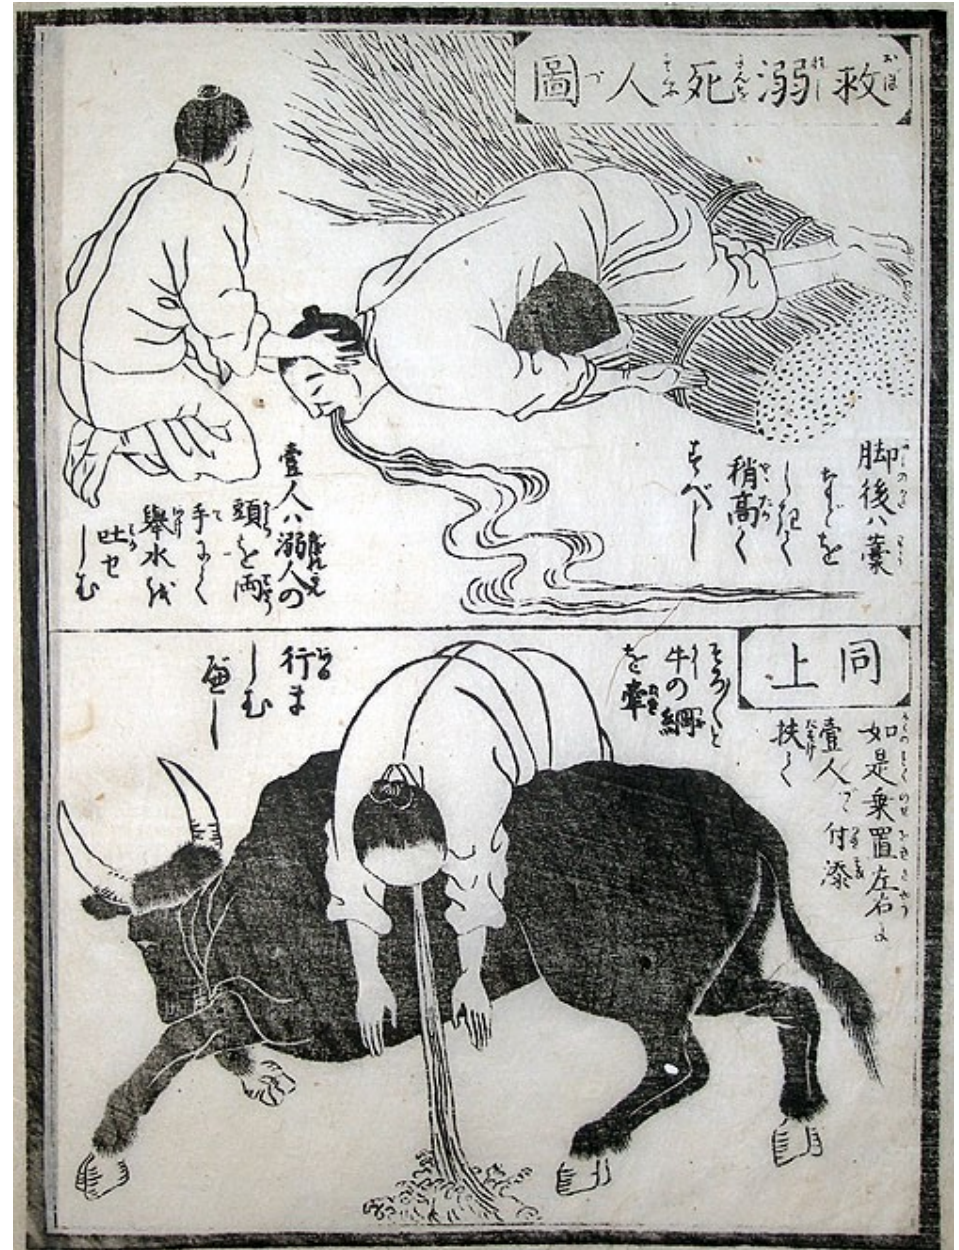 救溺死人圖
脚後ハ藁
などを
稍高く
すべし
壹人ハ溺人の
頭を両
手にて
擧水を
吐せ
しむ
同上
如是乗置左右に
壹人づゝ付添
扶て
そろ〳〵と
牛の綱
を牽
行
しむ
べし